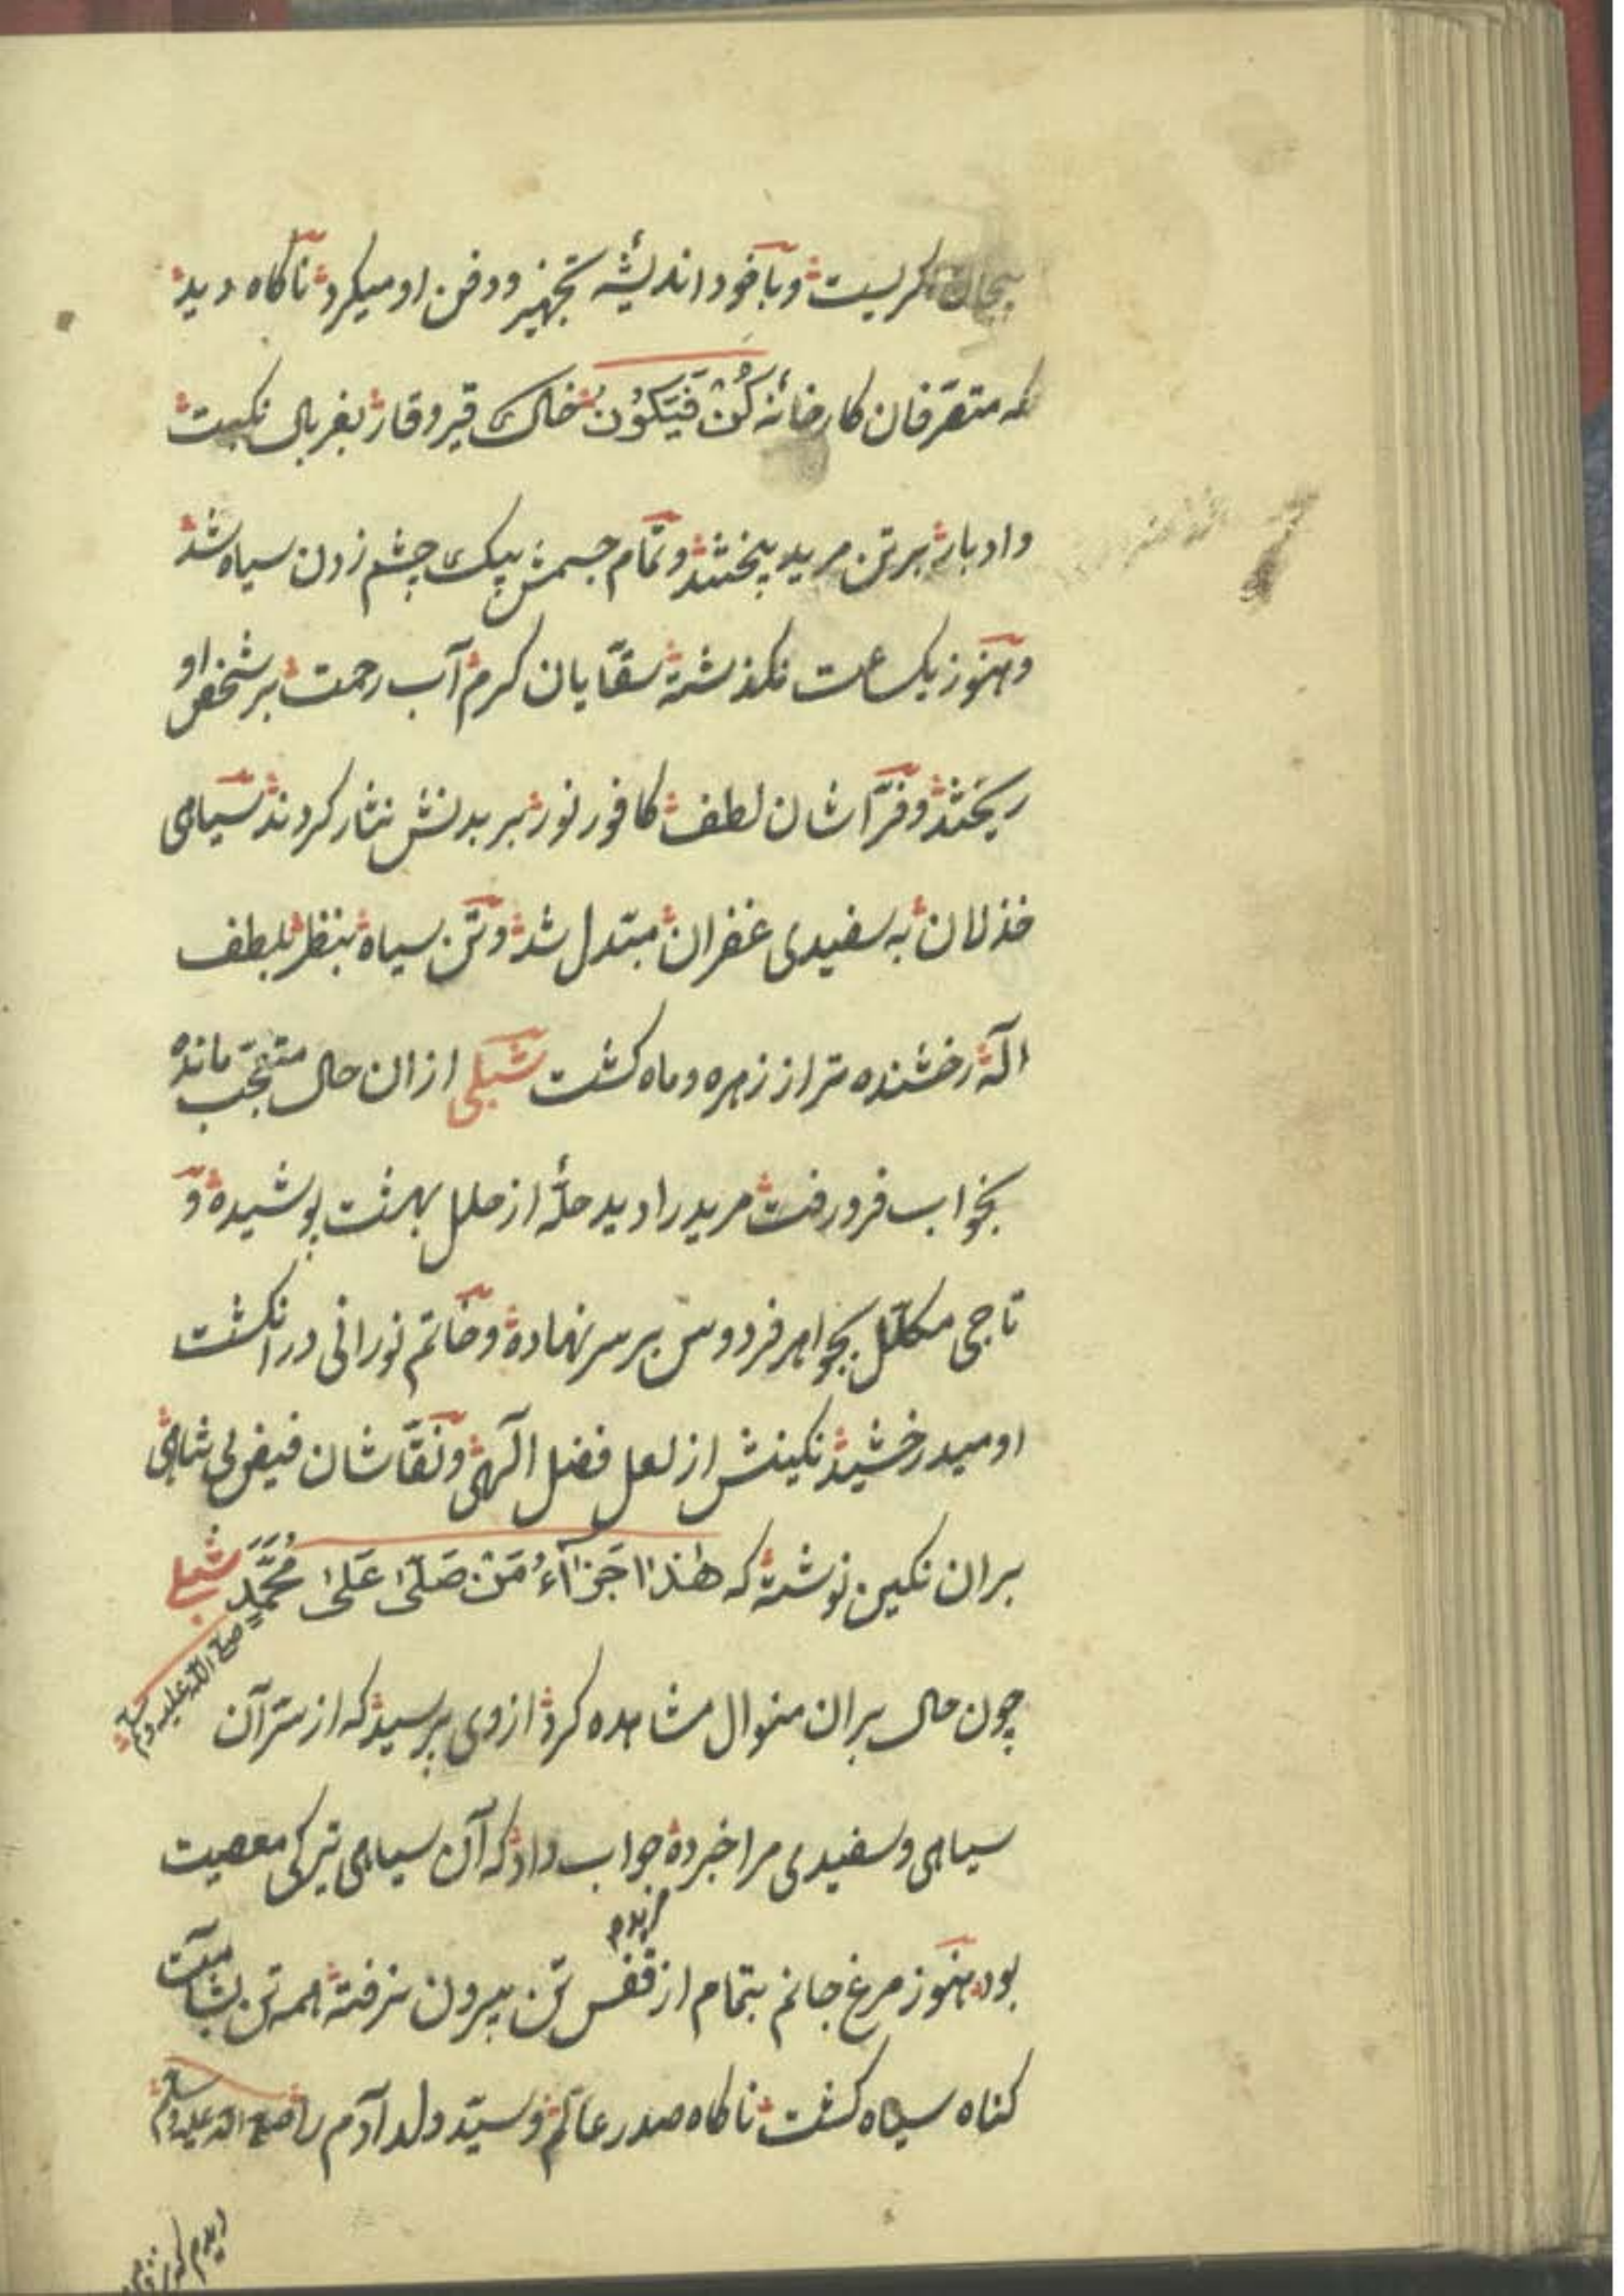 نگریست و با خود اندیشهٔ تجهیز و دفن او میکرد ناکاه دید
که متصرّفان کارخانهٔ کُنْ فَیَکُوْنُ خاک قیر و قار بغربال نکبت
و ادبار بر تن مرید بیختند و تمام جسمش بیک چشم زدن سیاه شد
و هنوز یک ساعت نکذشته سقّایان کرم آب رحمت بر شخص او
ریختند و فرّاشان لطف کافور نور بر بدنش نثار کردند سیاهی
خذلان به سفیدی غفران مبتدل شد و تن سیاه بنظر بلطف
اله رخشنده تر از زهره و ماه کشت شبلی ازان حال متعجّب مانده
بخواب فرو رفت مرید را دید حلّهٔ از حلل بهشت پوشیده و
تاجی مکلّل بجواهر فردوس بر سر نهاده و خاتم نورانی در انکشت
او میدرخشید نکینش از لعل فضل الٓهی و نقّاشان فیض لی شاهی
بران نکین نوشته که هٰذَا جَزَآءُ مَنْ صَلّٰی عَلٰی مُحَمَّدٍ شبلی
صلی الله علیه وسلم
چون حال بران منوال مشاهده کرد از وی پرسید که از سرّ آن
سیاهی و سفیدی مرا خبر ده جواب داد که آن سیاهی تیرکی معصیت
بود هنوز مرغ جانم بتمام از قفس تن بیرون نرفته همه تن بشامت
کناه سیاه کشت ناکاه صدر عالم و سیّد ولد آدم را صلی الله علیه وسلم
دیدم که از